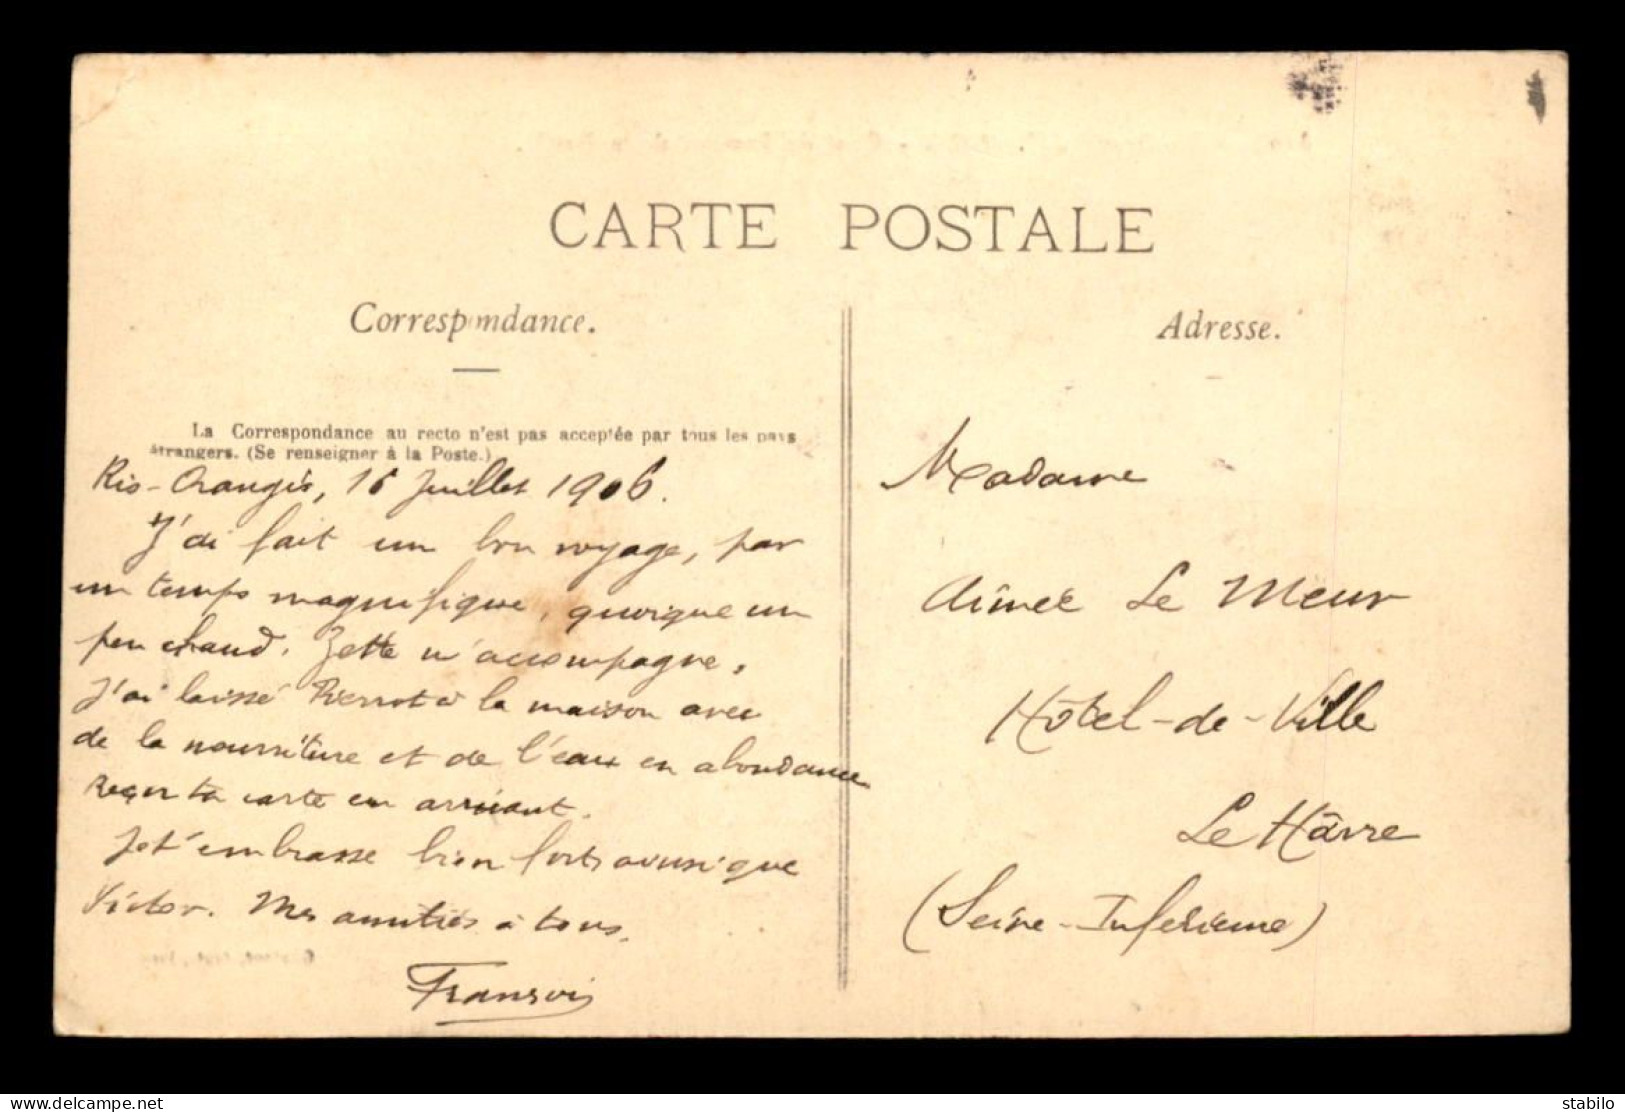 CARTE POSTALE
Correspondance.
Adresse.
La Correspondance au recto n'est pas acceptée par tous les pays
étrangers. (Se renseigner à la Poste.)
Ris-Orangis, 16 Juillet 1906.
J'ai fait un bon voyage, par
un temps magnifique, quoique un
peu chaud. Zette m'accompagne.
J'ai laissé Pierrot à la maison avec
de la nourriture et de l'eau en abondance
reçu ta carte en arrivant.
Je t'embrasse bien fort ainsi que
Victor. Mes amitiés à tous.
François
Madame
Aimée Le Meur
Hôtel-de-Ville
Le Hâvre
(Seine-Inférieure)
delcampe.net
stabilo